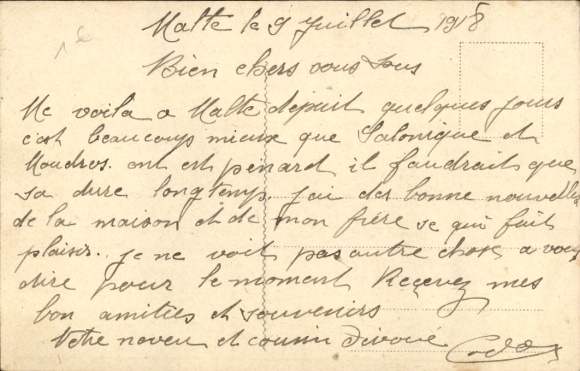 Malte le 9 Juillet 1918
Bien chers vous tous
Me voila a Malte depuit quelques jours
c'est beaucoup mieux que Salonique et
Moudros. ont est penard il faudrait que
sa dure longtemp. j'ai des bonne nouvelles
de la maison et de mon frère se qui fait
plaisir. je ne voit pas autre chose a vous
dire pour le moment Reçevez mes
bon amities et souvenirs
Votre neveu et cousin Divoué